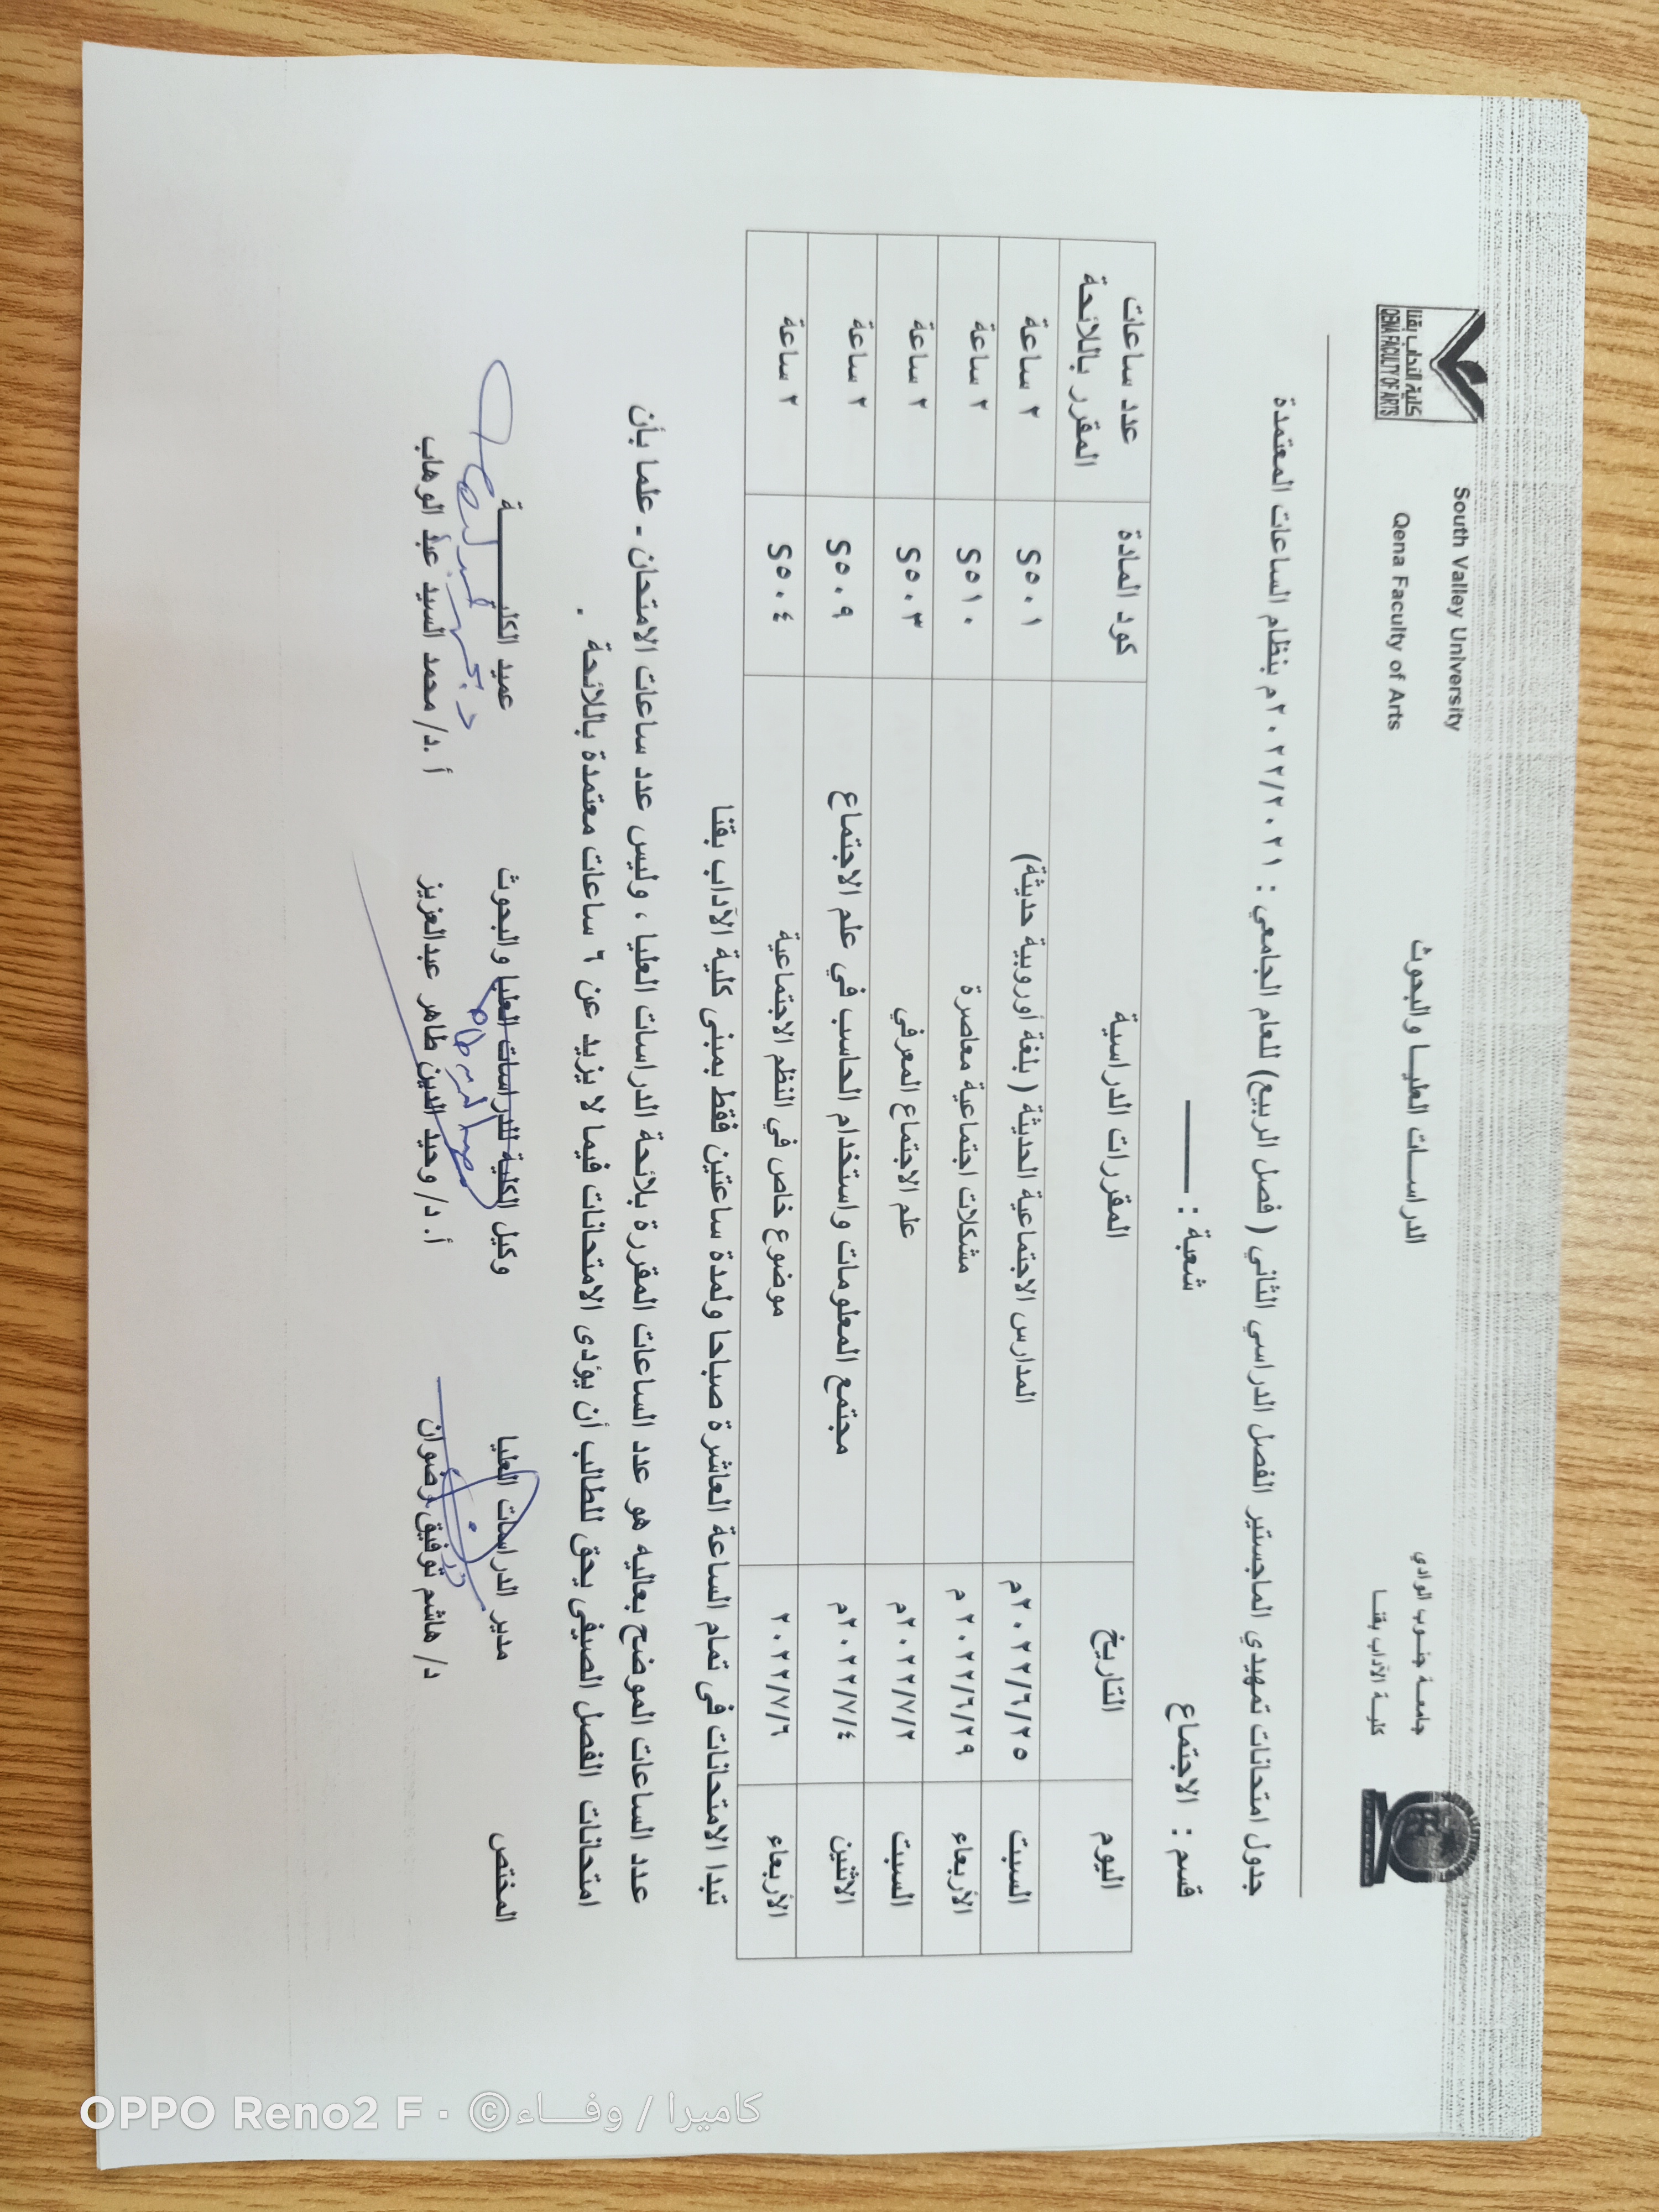 جامعـة جنـوب الوادي
كليـة الآداب بقنـا
الدراسـات العليـا والبحوث
South Valley University
Qena Faculty of Arts
كلية الآداب بقنا
QENA FACULTY OF ARTS
جدول امتحانات تمهيدي الماجستير الفصل الدراسي الثاني ( فصل الربيع) للعام الجامعي : ٢٠٢٢/٢٠٢١م بنظام الساعات المعتمدة
قسم : الاجتماع شعبة : ــــــــ
اليوم التاريخ المقررات الدراسية كود المادة عدد ساعات المقرر باللائحة
السبت ٢٠٢٢/٦/٢٥م المدارس الاجتماعية الحديثة ( بلغة أوروبية حديثة) S٥٠١ ٢ ساعة
الأربعاء ٢٠٢٢/٦/٢٩ م مشكلات اجتماعية معاصرة S٥١٠ ٢ ساعة
السبت ٢٠٢٢/٧/٢م علم الاجتماع المعرفي S٥٠٣ ٢ ساعة
الاثنين ٢٠٢٢/٧/٤م مجتمع المعلومات واستخدام الحاسب في علم الاجتماع S٥٠٩ ٢ ساعة
الأربعاء ٢٠٢٢/٧/٦ موضوع خاص في النظم الاجتماعية S٥٠٤ ٢ ساعة
تبدا الامتحانات فى تمام الساعة العاشرة صباحا ولمدة ساعتين فقط بمبنى كلية الآداب بقنا
عدد الساعات الموضح بعاليه هو عدد الساعات المقررة بلائحة الدراسات العليا ، وليس عدد ساعات الامتحان - علما بأن
امتحانات الفصل الصيفى يحق للطالب أن يؤدى الامتحانات فيما لا يزيد عن ٦ ساعات معتمدة باللائحة .
المختص مدير الدراسات العليا وكيل الكلية للدراسات العليا والبحوث عميد الكليــــــة
د/ هاشم توفيق رضوان أ. د/ وحيد الدين طاهر عبدالعزيز أ .د/ محمد السيد عبد الوهاب
OPPO Reno2 F · ©كاميرا / وفـــاء